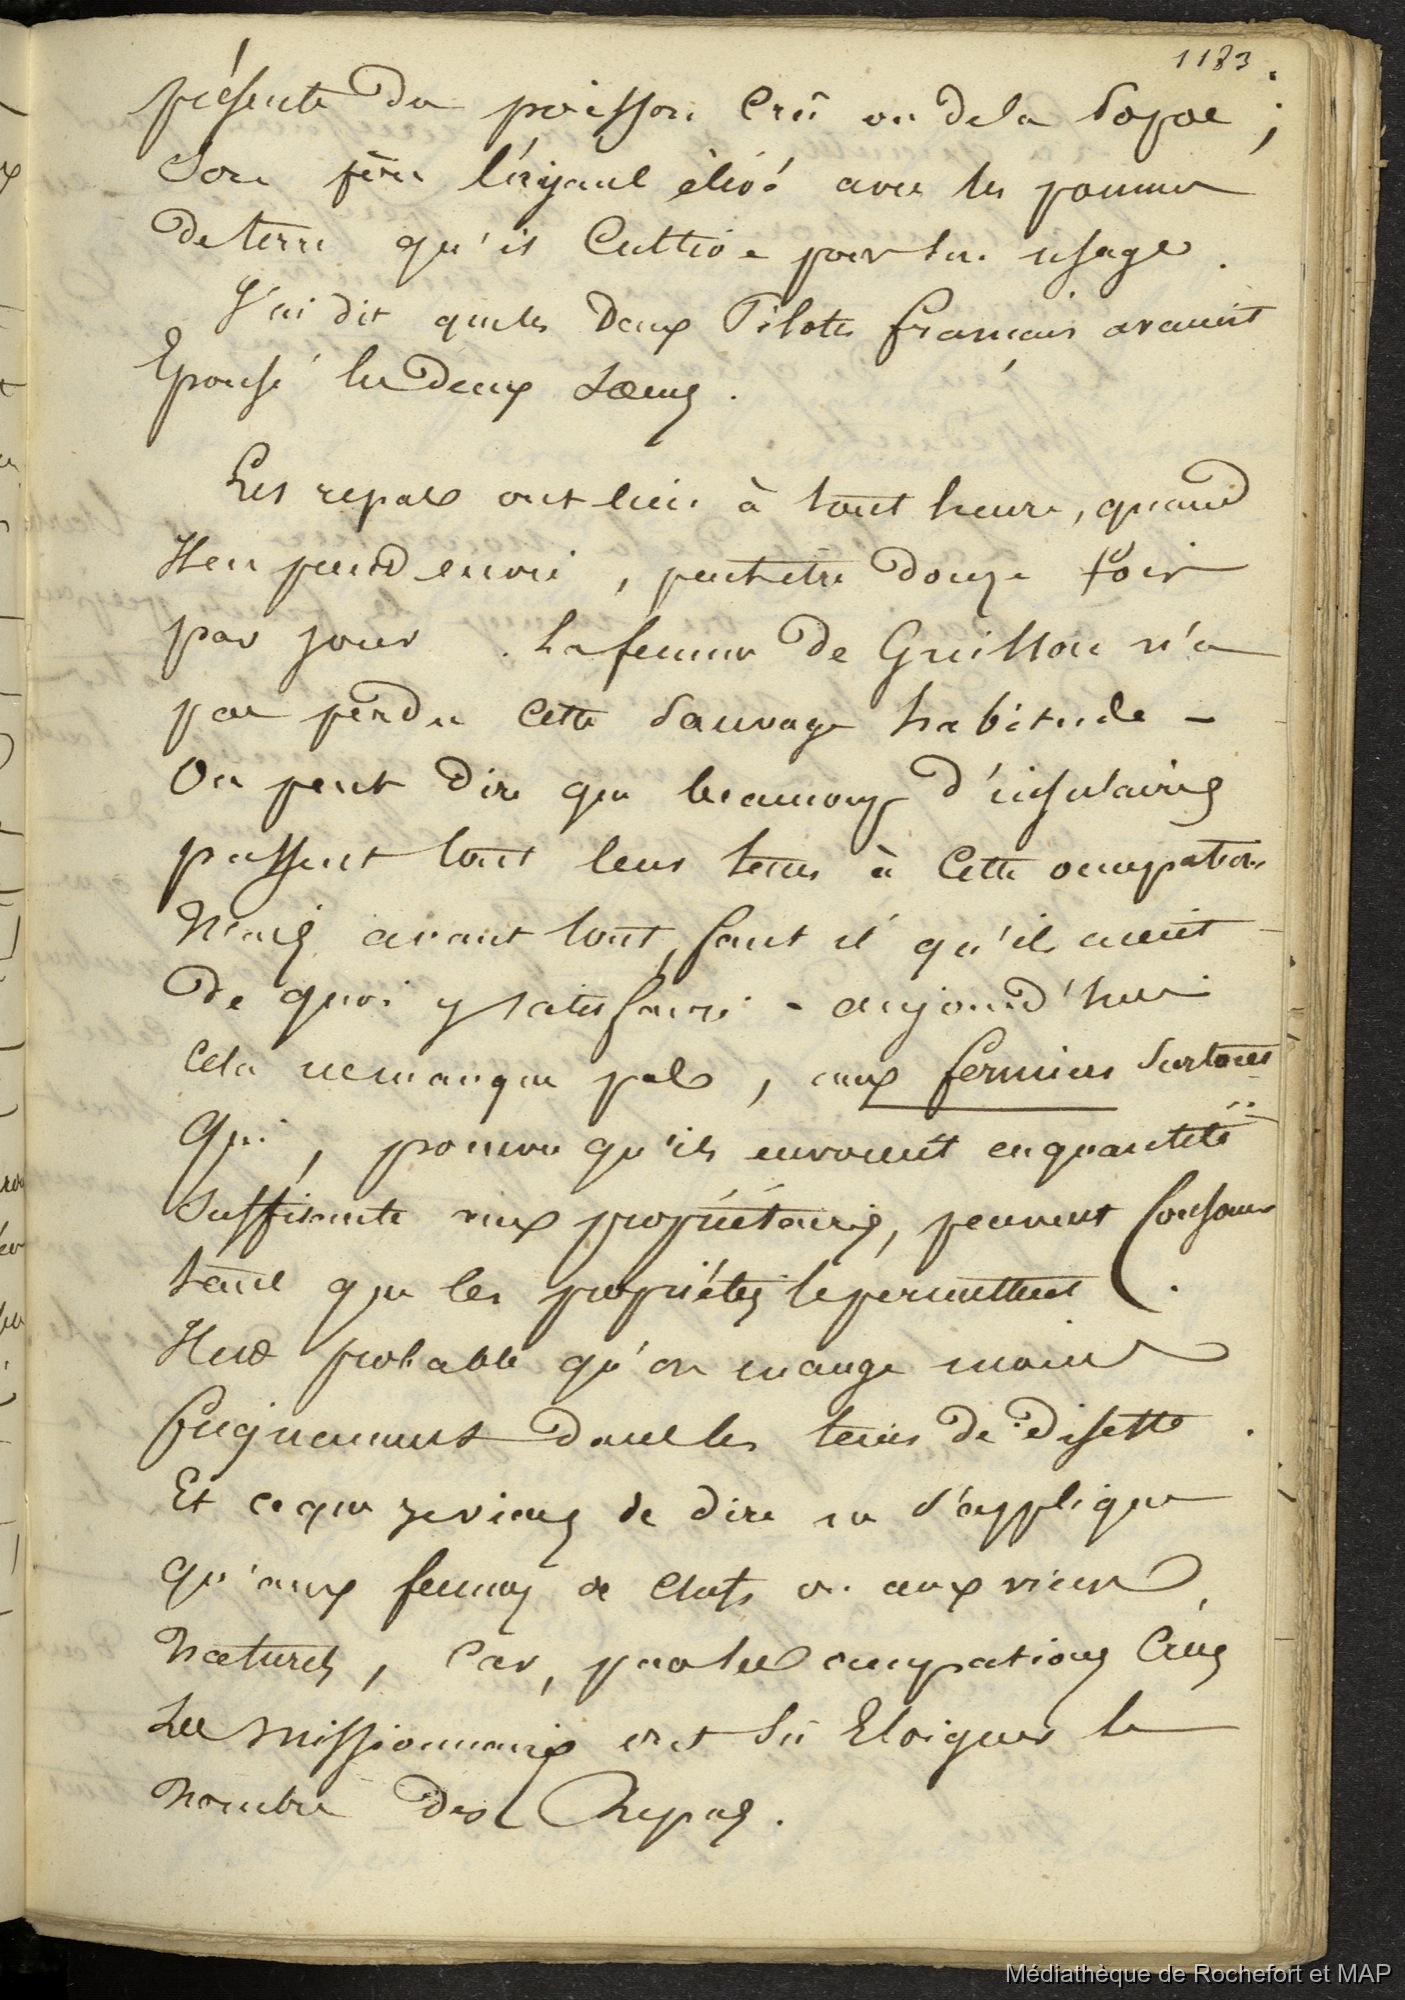 1183.
présente du poisson crû ou de la Popoe ;
Son père l'ayant élevé avec les pommes
de terre qu'il cultive pour son usage.
J'ai dit que les deux Pilotes français avaient
Epousé les deux sœurs.
Les repas ont lieu à tout heure, quand
Il en prend envie, peut être douze fois
par jour. La femme de Guillou n'a
pas perdu cette sauvage habitude -
On peut dire que beaucoup d'insulaires
passent tout leur tems à cette occupation
Mais avant tout, faut il qu'ils aient
de quoi y satisfaire - aujourd'hui
cela ne manque pas, aux fermiers surtout
Qui, pourvu qu'ils envoient en quantité
suffisante aux propriétaires, peuvent consommer
tant que les propriétés le permettent.
Il est probable qu'on mange moins
fréquemment dans les tems de disette.
Et ce que je viens de dire ne s'applique
qu'aux femmes de chefs ou aux vieux
naturels, car, par les occupations
Les missionnaires ont sû Eloigner le
nombre des Repas.
Médiathèque de Rochefort et MAP